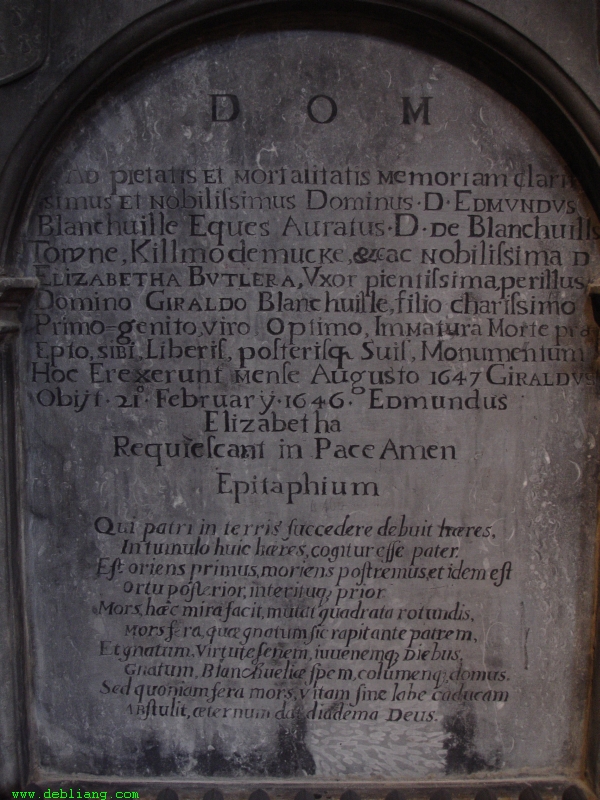 D O M
AD pietatis et mortalitatis memoriam claris
simus et nobilissimus Dominus · D · EDMVNDVS
Blanchuille Eques Auratus · D · de Blanchuills
Towne, Killmodemucke, &c ac nobilissima D
ELIZABETHA BVTLERA, Vxor pientissima, perillus
Domino GIRALDO Blanchuille, filio charissimo
Primo-genito, viro Optimo, Immatura Morte præ
Epto, sibi, Liberis, posterisq Suis, Monumentum
Hoc Erexerunt mense Augusto 1647 GIRALDVS
Obijt · 21° · February · 1646 · Edmundus
Elizabetha
Requiescant in Pace Amen
Epitaphium
Qui patri in terris succedere debuit hæres,
In tumulo huic hæres, cogitur esse pater.
Est oriens primus, moriens postremus, et idem est
Ortu posterior, interituq prior
Mors, hæc mira facit, mutat quadrata rotundis,
Mors fera, quæ gnatum sic rapit ante patrem,
Et gnatum, Virtute senem, iuuenemq Diebus,
Gnatum, Blanchueliæ spem, columenq domus.
Sed quoniam fera mors, vitam sine labe caducam
Abstulit, æternum dat diadema Deus.
www.debliang.com